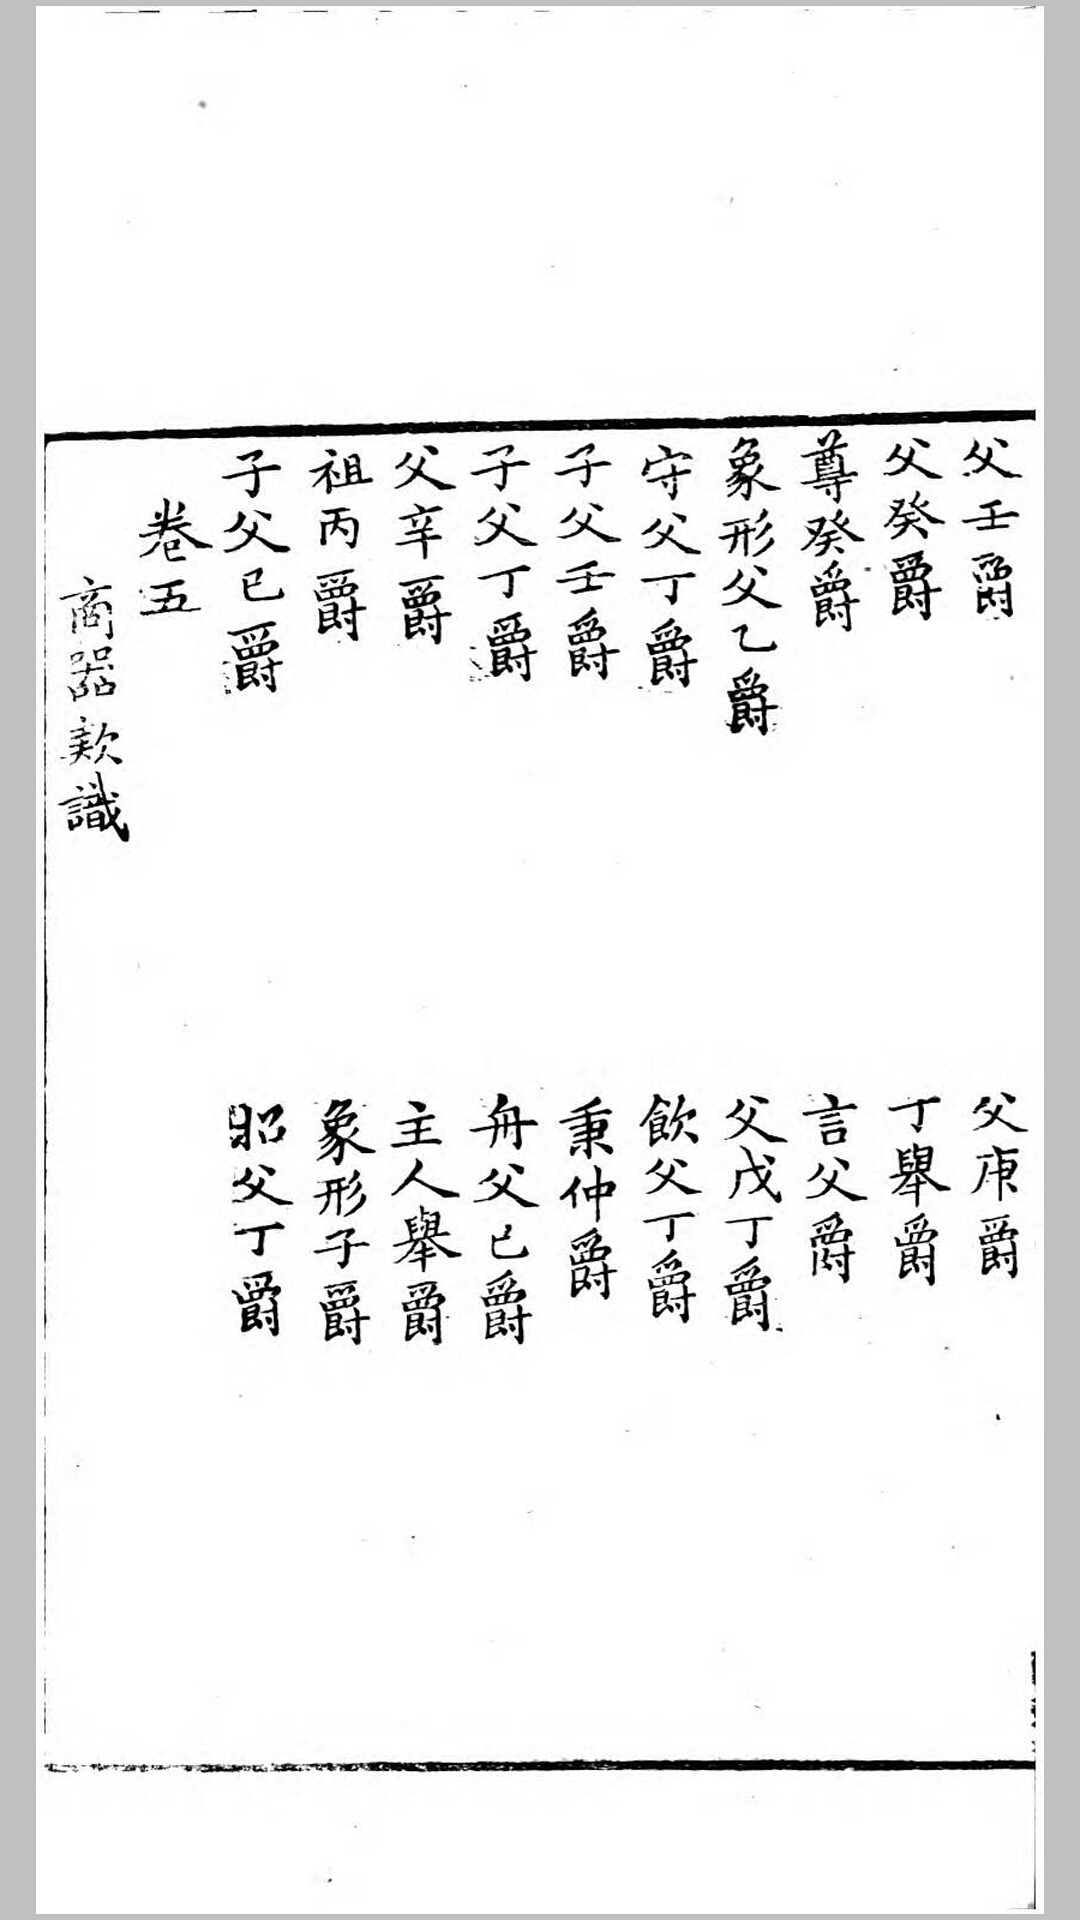 父壬爵　父庚爵
父癸爵　丁舉爵
尊癸爵　言父爵
象形父乙爵　父戊丁爵
守父丁爵　飲父丁爵
子父壬爵　秉仲爵
子父丁爵　舟父己爵
父辛爵　主人舉爵
祖丙爵　象形子爵
子父己爵　昭父丁爵
卷五
商器款識